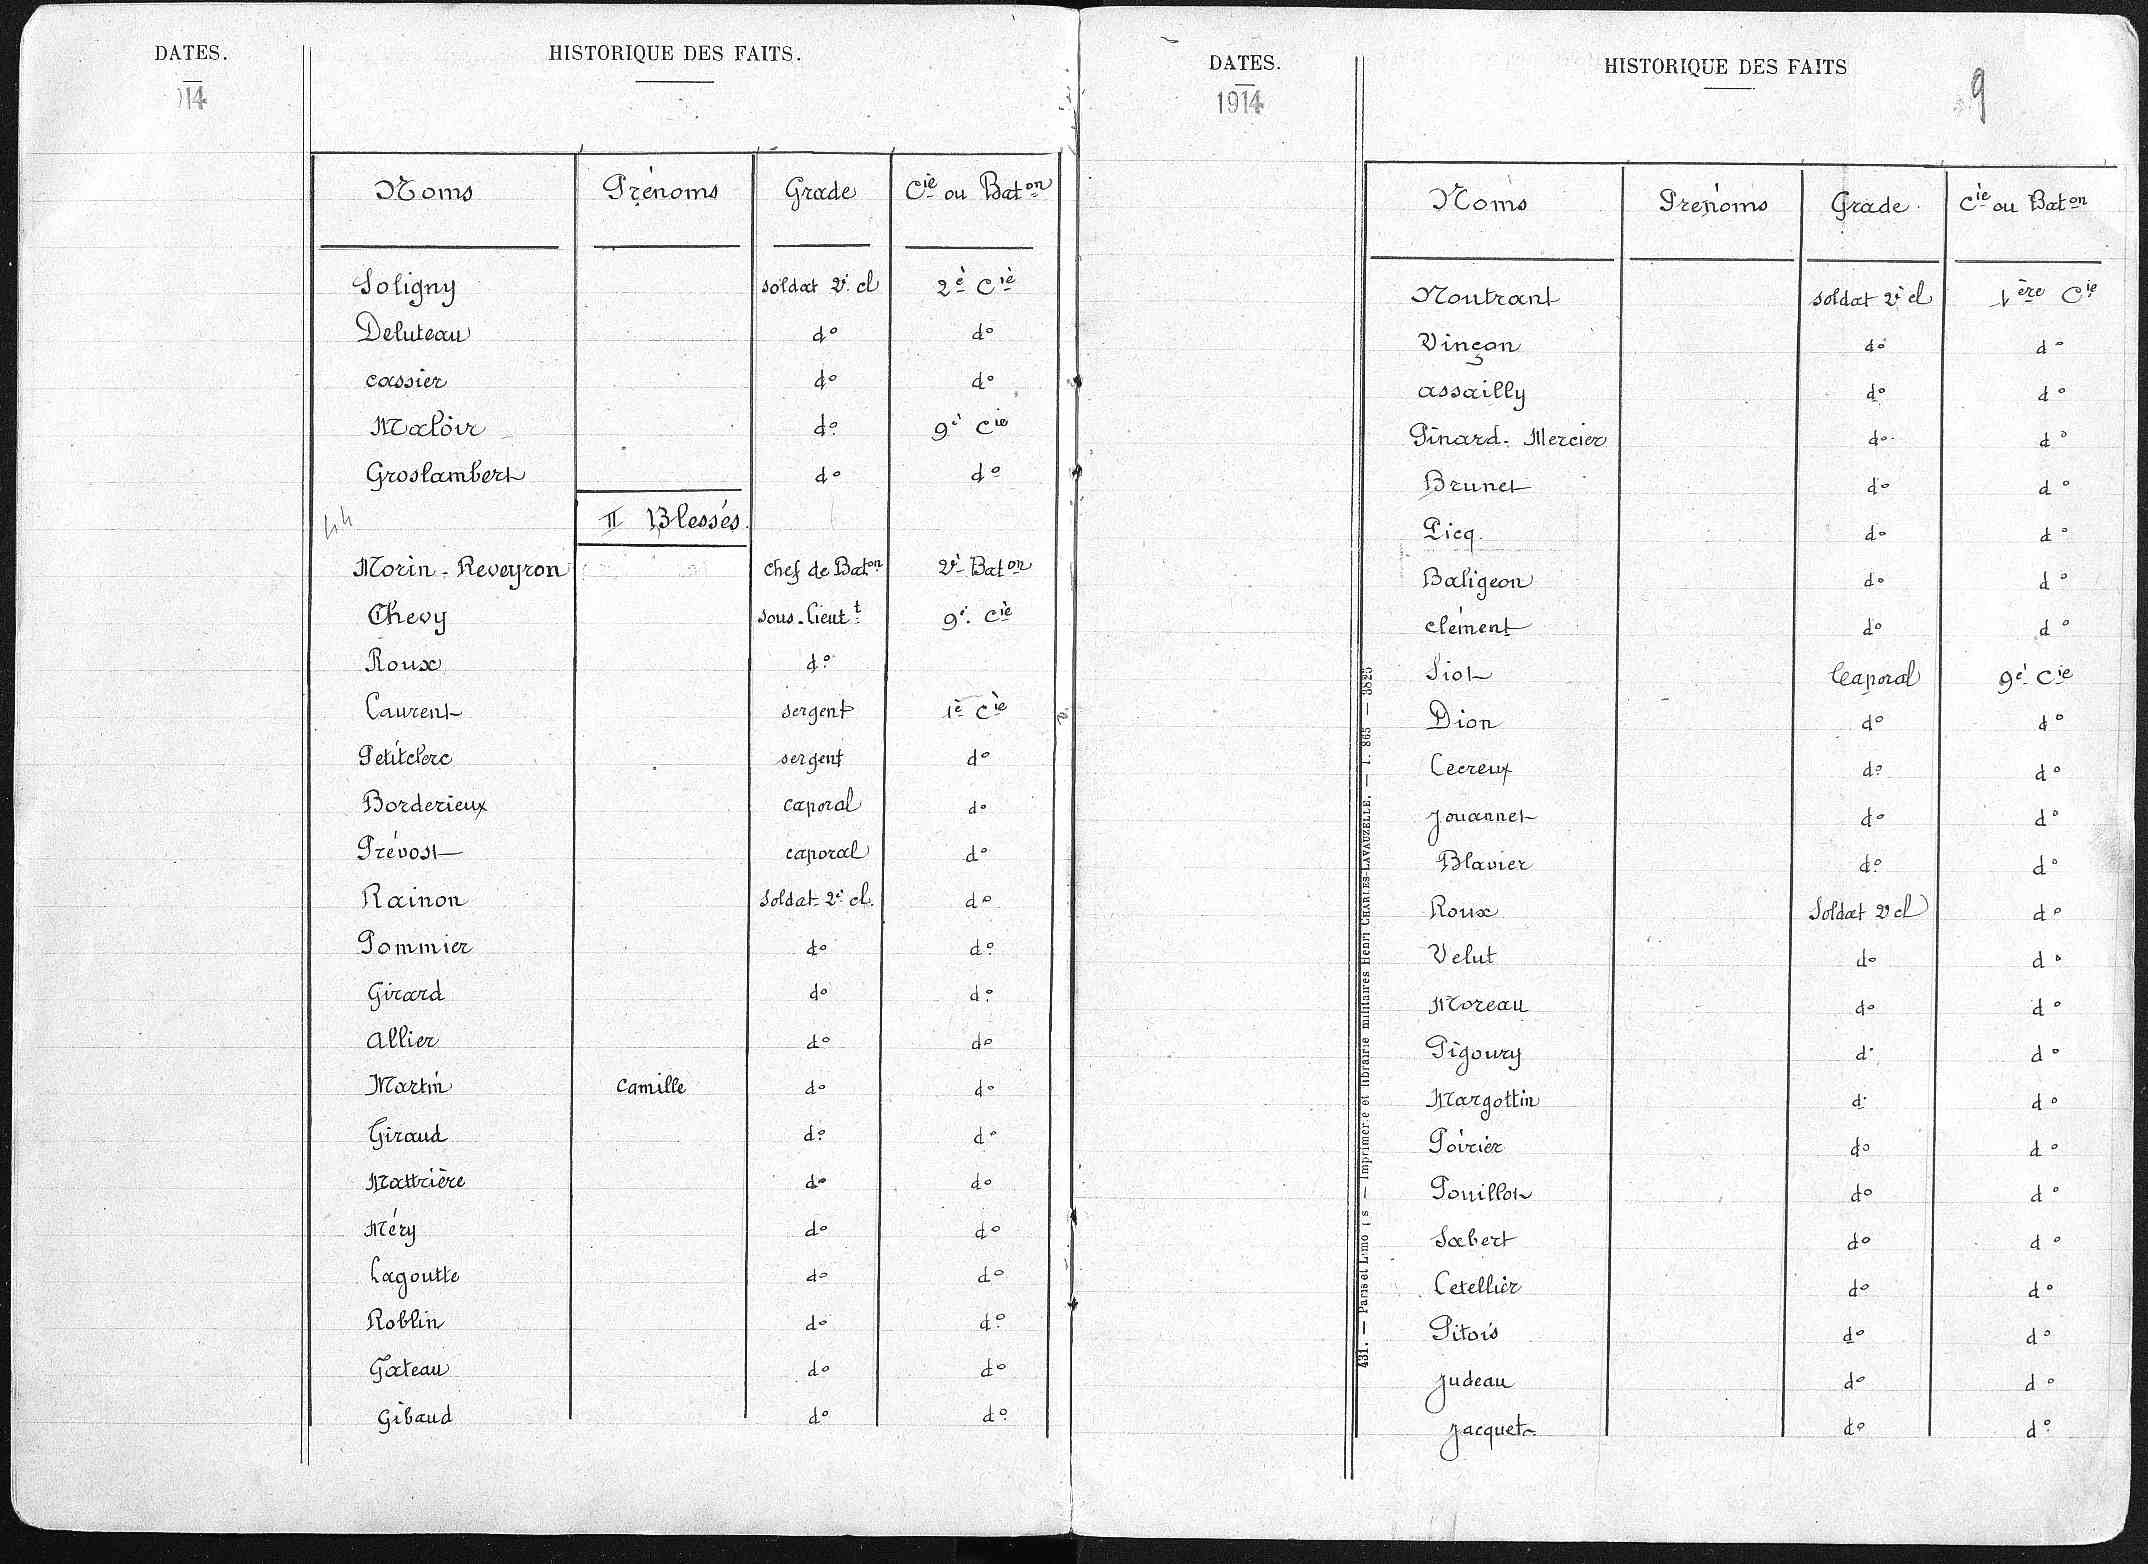 DATES.
HISTORIQUE DES FAITS.
14
Noms Prénoms Grade Cie ou Baton
Soligny soldat 2è. cl 2è Cie
Deluteau do do
cassier do do
Maloir do 9è Cie
Groslambert do do
II Blessés.
Morin-Reveyron chef de Baton 2è Baton
Chevy sous-lieutt 9è. Cie
Roux do
Laurent sergent 1è Cie
Petitclerc sergent do
Borderieux caporal do
Prévost caporal do
Rainon soldat 2è cl. do
Pommier do do
Girard do do
Allier do do
Martin Camille do do
Giraud do do
Mattrière do do
Méry do do
Lagoutte do do
Roblin do do
Gateau do do
Gibaud do do
DATES.
HISTORIQUE DES FAITS
1914
9
Noms Prénoms Grade Cie ou Baton
Moutrant soldat 2è cl 1ère Cie
Vinçon do do
assailly do do
Pinard-Mercier do do
Brunet do do
Picq. do do
Baligeon do do
clément do do
Siot Caporal 9è Cie
Dion do do
Lecreux do do
Jouannet do do
Blavier do do
Roux Soldat 2è cl do
Velut do do
Moreau do do
Pigoury do do
Margottin do do
Poirier do do
Pouillot do do
Sabert do do
Letellier do do
Pitois do do
Judeau do do
Jacquet do do
431. — Paris et Limoges — Imprimerie et librairie militaires Henri CHARLES-LAVAUZELLE. — 1. 865 — 3825